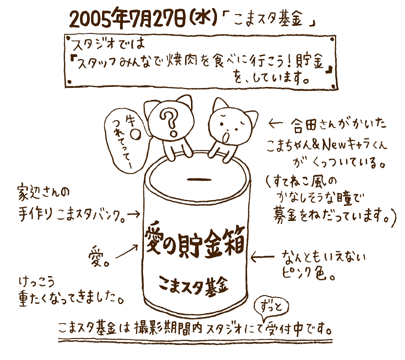 2005年7月27日(水)「こまスタ基金」
スタジオでは
『スタッフみんなで焼肉を食べに行こう!貯金』
を、しています。
?
牛○
つれてってー
← 合田さんがかいた
こまちゃん&Newキャラくん
がくっついている。
(すてねこ風の
かなしそうな瞳で
募金をねだっています。)
家辺さんの
手作りこまスタバンク。→
愛の貯金箱
こまスタ基金
愛。
← なんともいえない
ピンク色。
けっこう
重たくなってきました。
ずっと
こまスタ基金は撮影期間内スタジオにて受付中です。